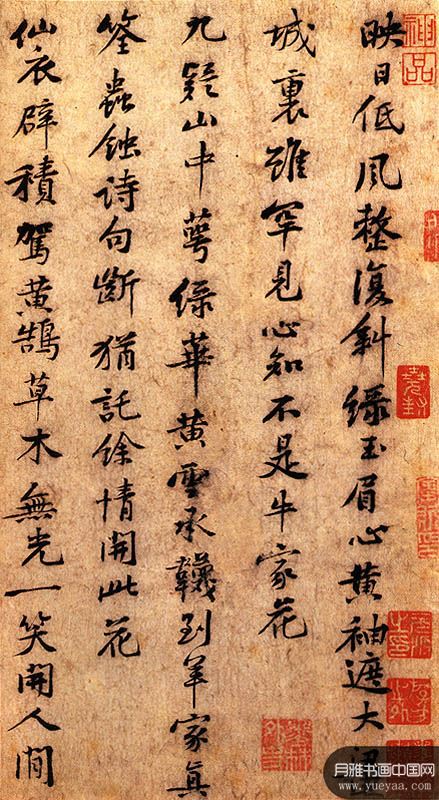 映日低風整復斜綠玉眉心黃袖遮大
城裏雖罕見心知不是牛家花
九疑山中萼綠華黃雲承韈到羊家真
筌蟲蝕詩句斷猶託餘情開此花
仙衣辟積駕黃鵠草木無光一笑開人間
月雅书画中国网
www.yueyaa.com